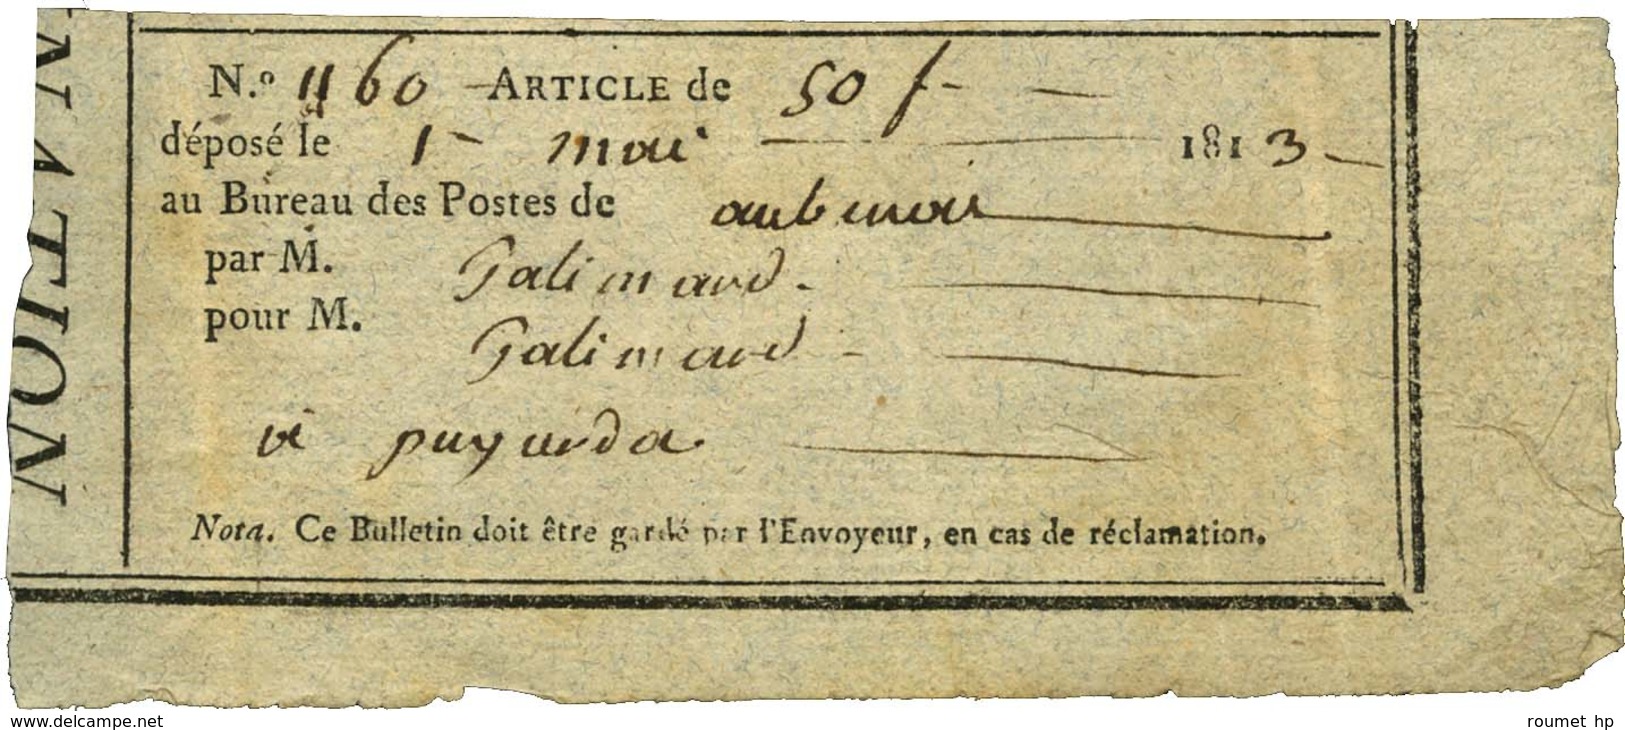 N.º 1160 ARTICLE de 50 f
déposé le 1 mai 1813
au Bureau des Postes de
par M. Galimard
pour M. Galimard
puyurda
Nota. Ce Bulletin doit être gardé par l'Envoyeur, en cas de réclamation.
www.delcampe.net
roumet hp